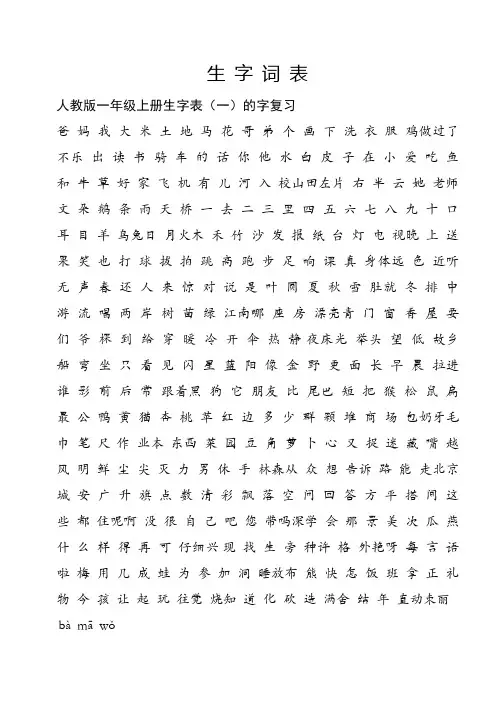 生 字 词 表
人教版一年级上册生字表（一）的字复习
爸 妈 我 大 米 土 地 马 花 哥 弟 个 画 下 洗 衣 服 鸡做过了
不乐 出 读 书 骑 车 的 话 你 他 水 白 皮 子 在 小 爱 吃 鱼
和 牛 草 好 家 飞 机 有 儿 河 入 校山田左片 右 半 云 她 老师
文 朵 鹅 条 雨 天 桥 一 去 二 三 里 四 五 六 七 八 九 十 口
耳 目 羊 鸟兔日 月火木 禾 竹 沙 发 报 纸 台 灯 电 视晚 上 送
果 笑 也 打 球 拔 拍 跳 高 跑 步 足 响 课 真 身体远 色 近听
无 声 春 还 人 来 惊 对 说 是 叶 圆 夏 秋 雪 肚就 冬 排 中
游 流 唱 两 岸 树 苗 绿 江南哪 座 房 漂亮青 门 窗 香 屋 要
们 爷 棵 到 给 穿 暖 冷 开 伞 热 静 夜床光 举头 望 低 故乡
船 弯 坐 只 看 见 闪 星 蓝 阳 像 金 野 更 面 长 早 晨 拉进
谁 形 前 后 常 跟着黑 狗 它 朋友 比 尾巴 短 把 猴 松 鼠 扁
最 公 鸭 黄 猫 杏 桃 苹 红 边 多 少 群 颗 堆 商 场 包奶牙毛
巾 笔 尺 作 业本 东西 菜 园 豆 角 萝 卜 心 又 捉 迷 藏 嘴 越
风 明 鲜 尘 尖 灭 力 男 休 手 林森从 众 想 告诉 路 能 走北京
城 安 广 升 旗 点 数 清 彩 飘 落 空 问 回 答 方 平 搭 间 这
些 都 住呢啊 没 很 自 己 吧 您 带吗深学 会 那 景 美 次 瓜 燕
什 么 样 得 再 可 仔细兴 现 找 生 旁 种许 格 外艳呀 每 言 语
啦 梅 用 几 成 蛙 为 参 加 洞 睡放布 熊 快 怎 饭 班 拿 正 礼
物 今 孩 让 起 玩 往觉 烧知 道 化 砍 造 满舍 结 年 直动束丽
bà mā wǒ